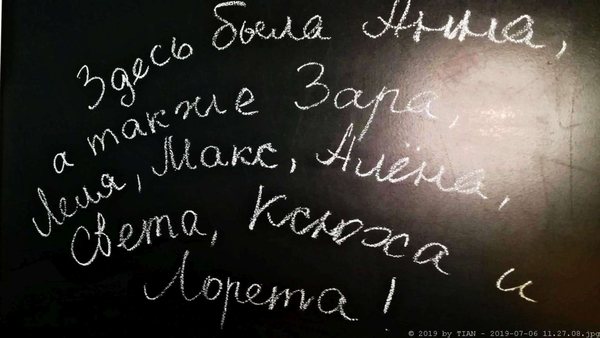 Здесь была Анна,
а также Зара,
Леля, Макс, Алёна,
Света, Ксюжа и
Лорета!
© 2019 by TIAN - 2019-07-06 11.27.08.jpg